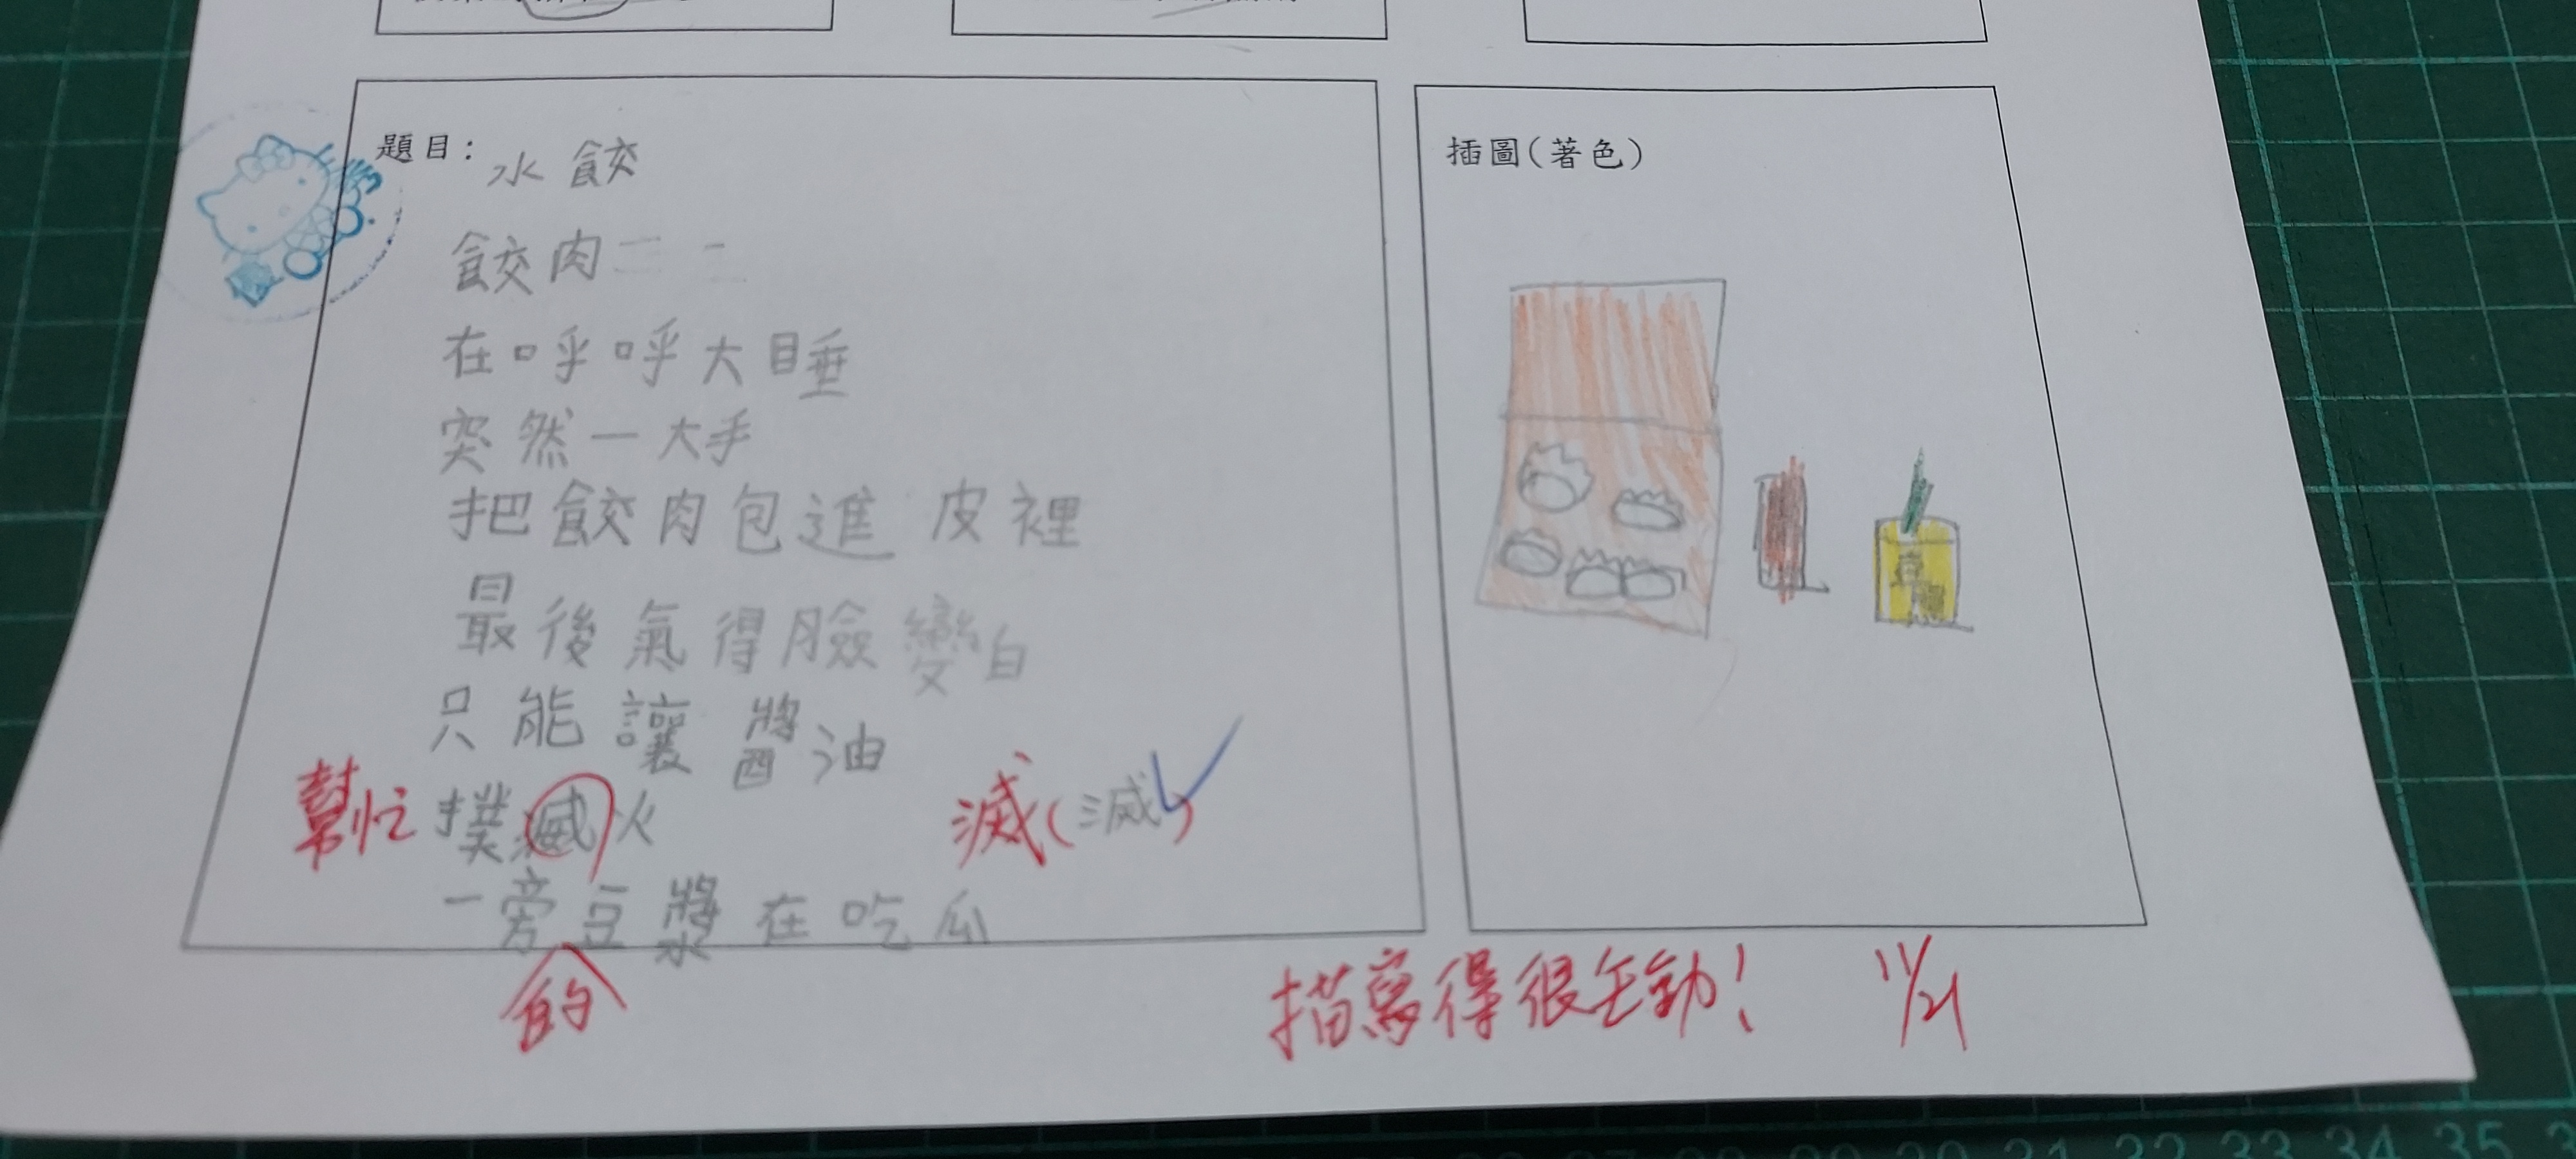 題目：水餃
餃肉
在呼呼大睡
突然一大手
把餃肉包進皮裡
最後氣得臉變白
只能讓醬油
幫忙撲滅火 滅(滅)
一旁豆漿在吃瓜
的
描寫得很生動！ 11/21
插圖(著色)
31 32 33 34 35